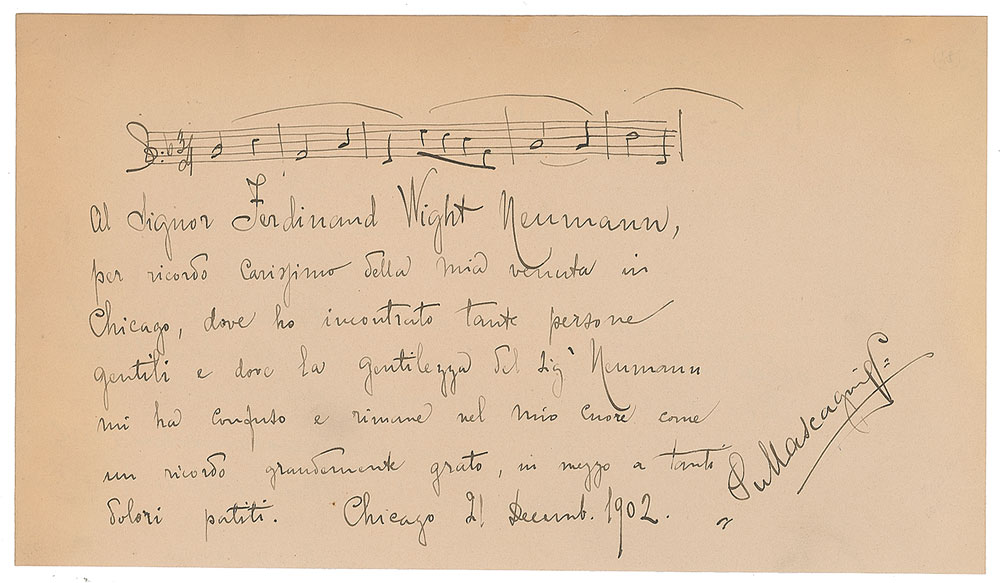 Al Signor Ferdinand Wight Neumann,
per ricordo carissimo della mia venuta in
Chicago, dove ho incontrato tante persone
gentili e dove la gentilezza del Sigr Neumann
mi ha confuso e rimane nel mio cuore come
un ricordo grandemente grato, in mezzo a tanti
dolori patiti. Chicago 21 Decemb. 1902.
PMascagni